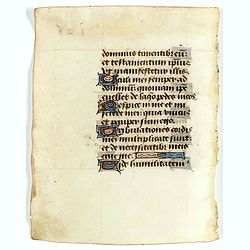 dominus timentibus eū:
et testamentum ipsius
ut manifestetur illis
Oculi mei semper ad
dominū: quoniam ipse
euellet de laqueo pedes meos
Respice in me et mi
serere mei: quia unicus
et pauper sum ego
Tribulationes cordis
mei multiplicate sunt
de necessitatib meis
erue me
Vide humilitatem